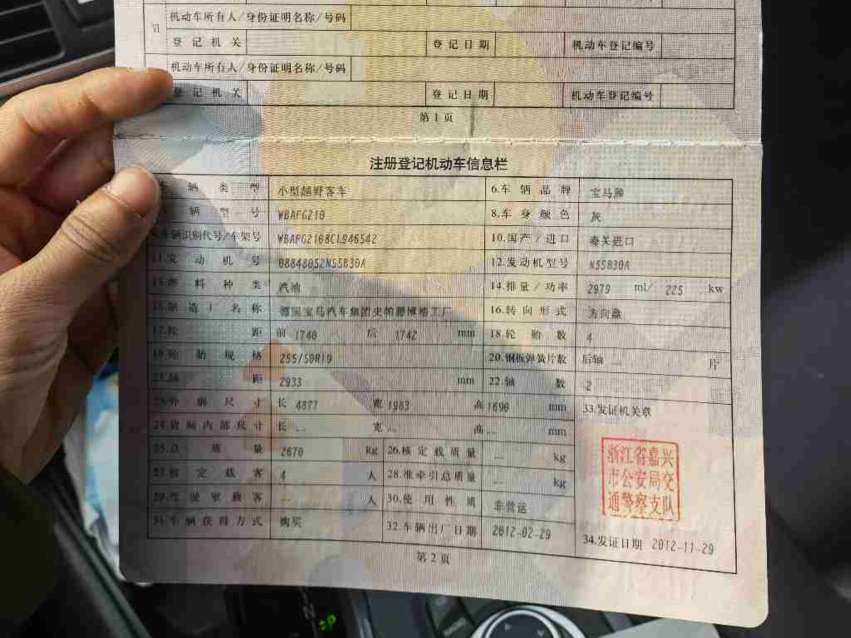 机动车所有人/身份证明名称/号码
登记机关 登记日期 机动车登记编号
机动车所有人/身份证明名称/号码
登记机关 登记日期 机动车登记编号
第1页
注册登记机动车信息栏
辆类型 小型越野客车 6.车辆品牌 宝马牌
辆型号 WBAFG210 8.车身颜色 灰
车辆识别代号/车架号 10.国产/进口 海关进口
11.发动机号 08848052N55B30A 12.发动机型号 N55B30A
燃料种类 汽油 14.排量/功率 2979 ml/ 225 kw
制造厂名称 16.转向形式 方向盘
17.轮距 前 1740 后 1742 mm 18.轮胎数 4
19.轮胎规格 255/50R19 20.钢板弹簧片数 后轴 -- 片
轴距 2933 mm 22.轴数 2
23.外廓尺寸 长 4877 宽 1983 高 1690 mm 33.发证机关章
24.货厢内部尺寸 长 -- 宽 -- 高 -- mm
总质量 2670 kg 26.核定载质量 -- kg
核定载客 4 人 28.准牵引总质量 -- kg
驾驶室载客 -- 人 30.使用性质 非营运
31.车辆获得方式 购买 32.车辆出厂日期 2012-02-29 34.发证日期 2012-11-29
浙江省嘉兴
市公安局交
通警察支队
第2页